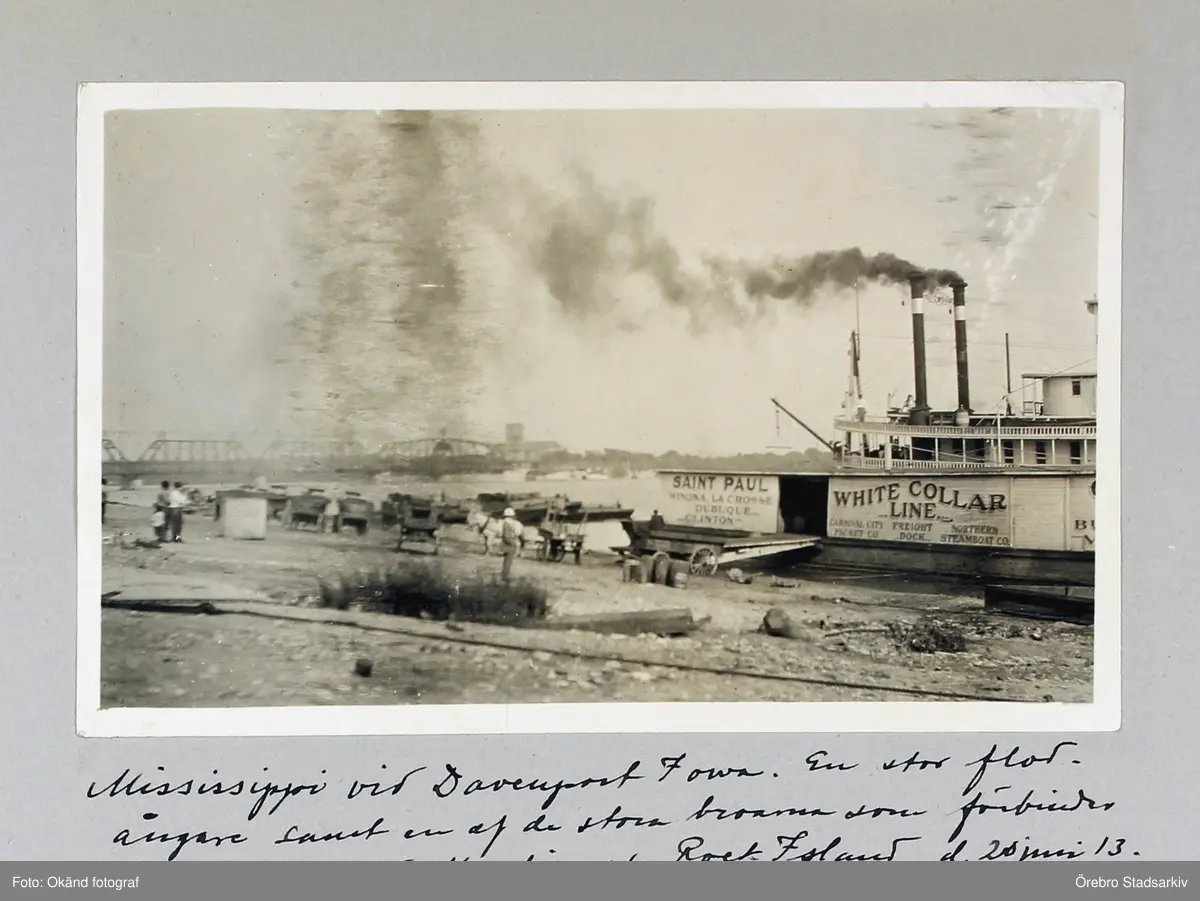 SAINT PAUL
WINONA, LA CROSSE
DUBUQUE
CLINTON
WHITE COLLAR
LINE
CARNIVAL CITY FREIGHT NORTHERN
PACKET CO. DOCK STEAMBOAT CO.
Mississippi vid Davenport Iowa. En stor flod-
ångare samt en af de stora broarna som förbinder
Rock Island d. 28 juni 13.
Foto: Okänd fotograf
Örebro Stadsarkiv